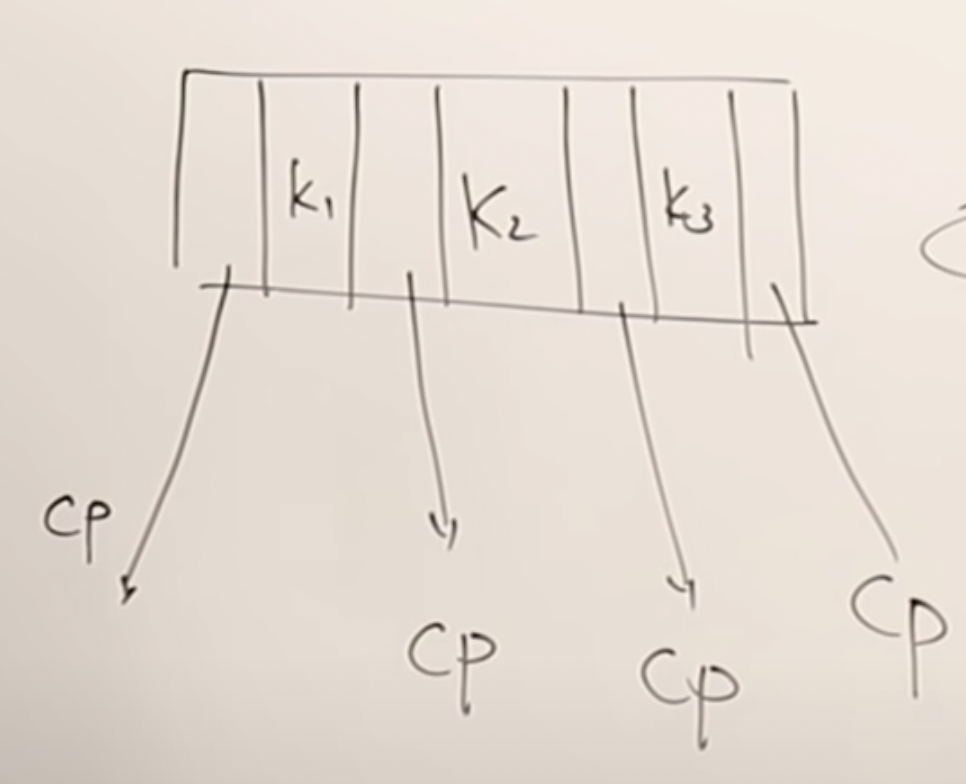 k₁ K₂ k₃
CP
CP
Cp
Cp